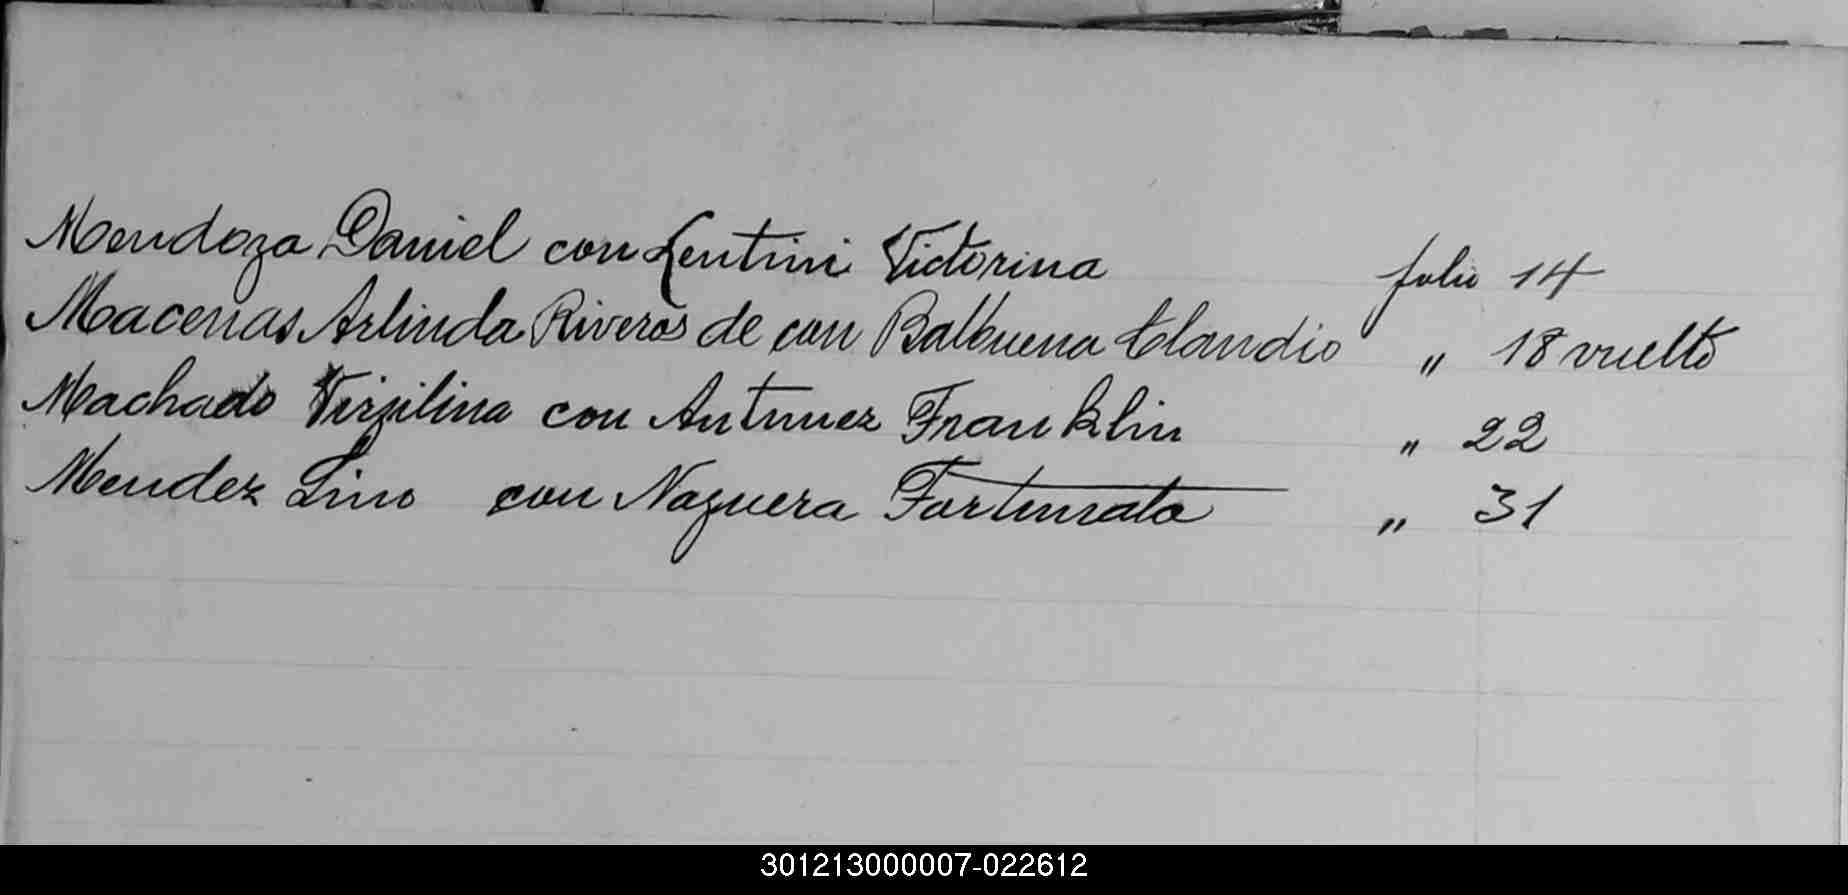 Mendoza Daniel con Lentini Victorina folio 14
Macenas Arlinda Riveros de con Balbuena Claudio " 18 vuelto
Machado Virgilina con Antunez Franklin " 22
Mendez Lino con Noguera Fortunata " 31
301213000007-022612